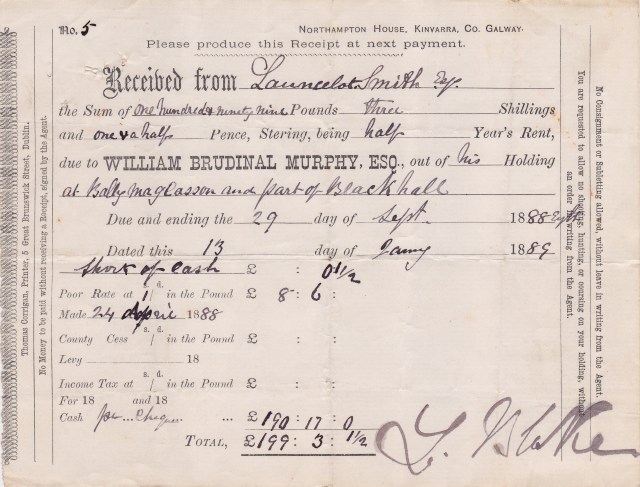 No. 5
NORTHAMPTON HOUSE, KINVARRA, CO. GALWAY.
Please produce this Receipt at next payment.
Received from Launcelot Smith Esq.
the Sum of one hundred & ninety nine Pounds three Shillings
and one & a half Pence, Stering, being half Year's Rent,
due to WILLIAM BRUDINAL MURPHY, ESQ., out of his Holding
at Ballymaglasson and part of Blackhall
Due and ending the 29 day of Sept. 1888 Eight
Dated this 13 day of Jany 1889
Short of Cash £ : 0 1½
Poor Rate at 1 s. / d. in the Pound £ 8 : 6 :
Made 24 April 1888
County Cess s. / d. in the Pound £ : :
Levy 18
Income Tax at s. / d. in the Pound £ : :
For 18 and 18
Cash per Cheque ... £ 190 : 17 : 0
TOTAL, £ 199 : 3 : 1½
L. Blake
Thomas Corrigan, Printer, 5 Great Brunswick Street, Dublin.
No Money to be paid without receiving a Receipt, signed by the Agent.
No Consignment or Subletting allowed, without leave in writing from the Agent.
You are requested to allow no shooting, hunting, or coursing on your holding, without
an order in writing from the Agent.